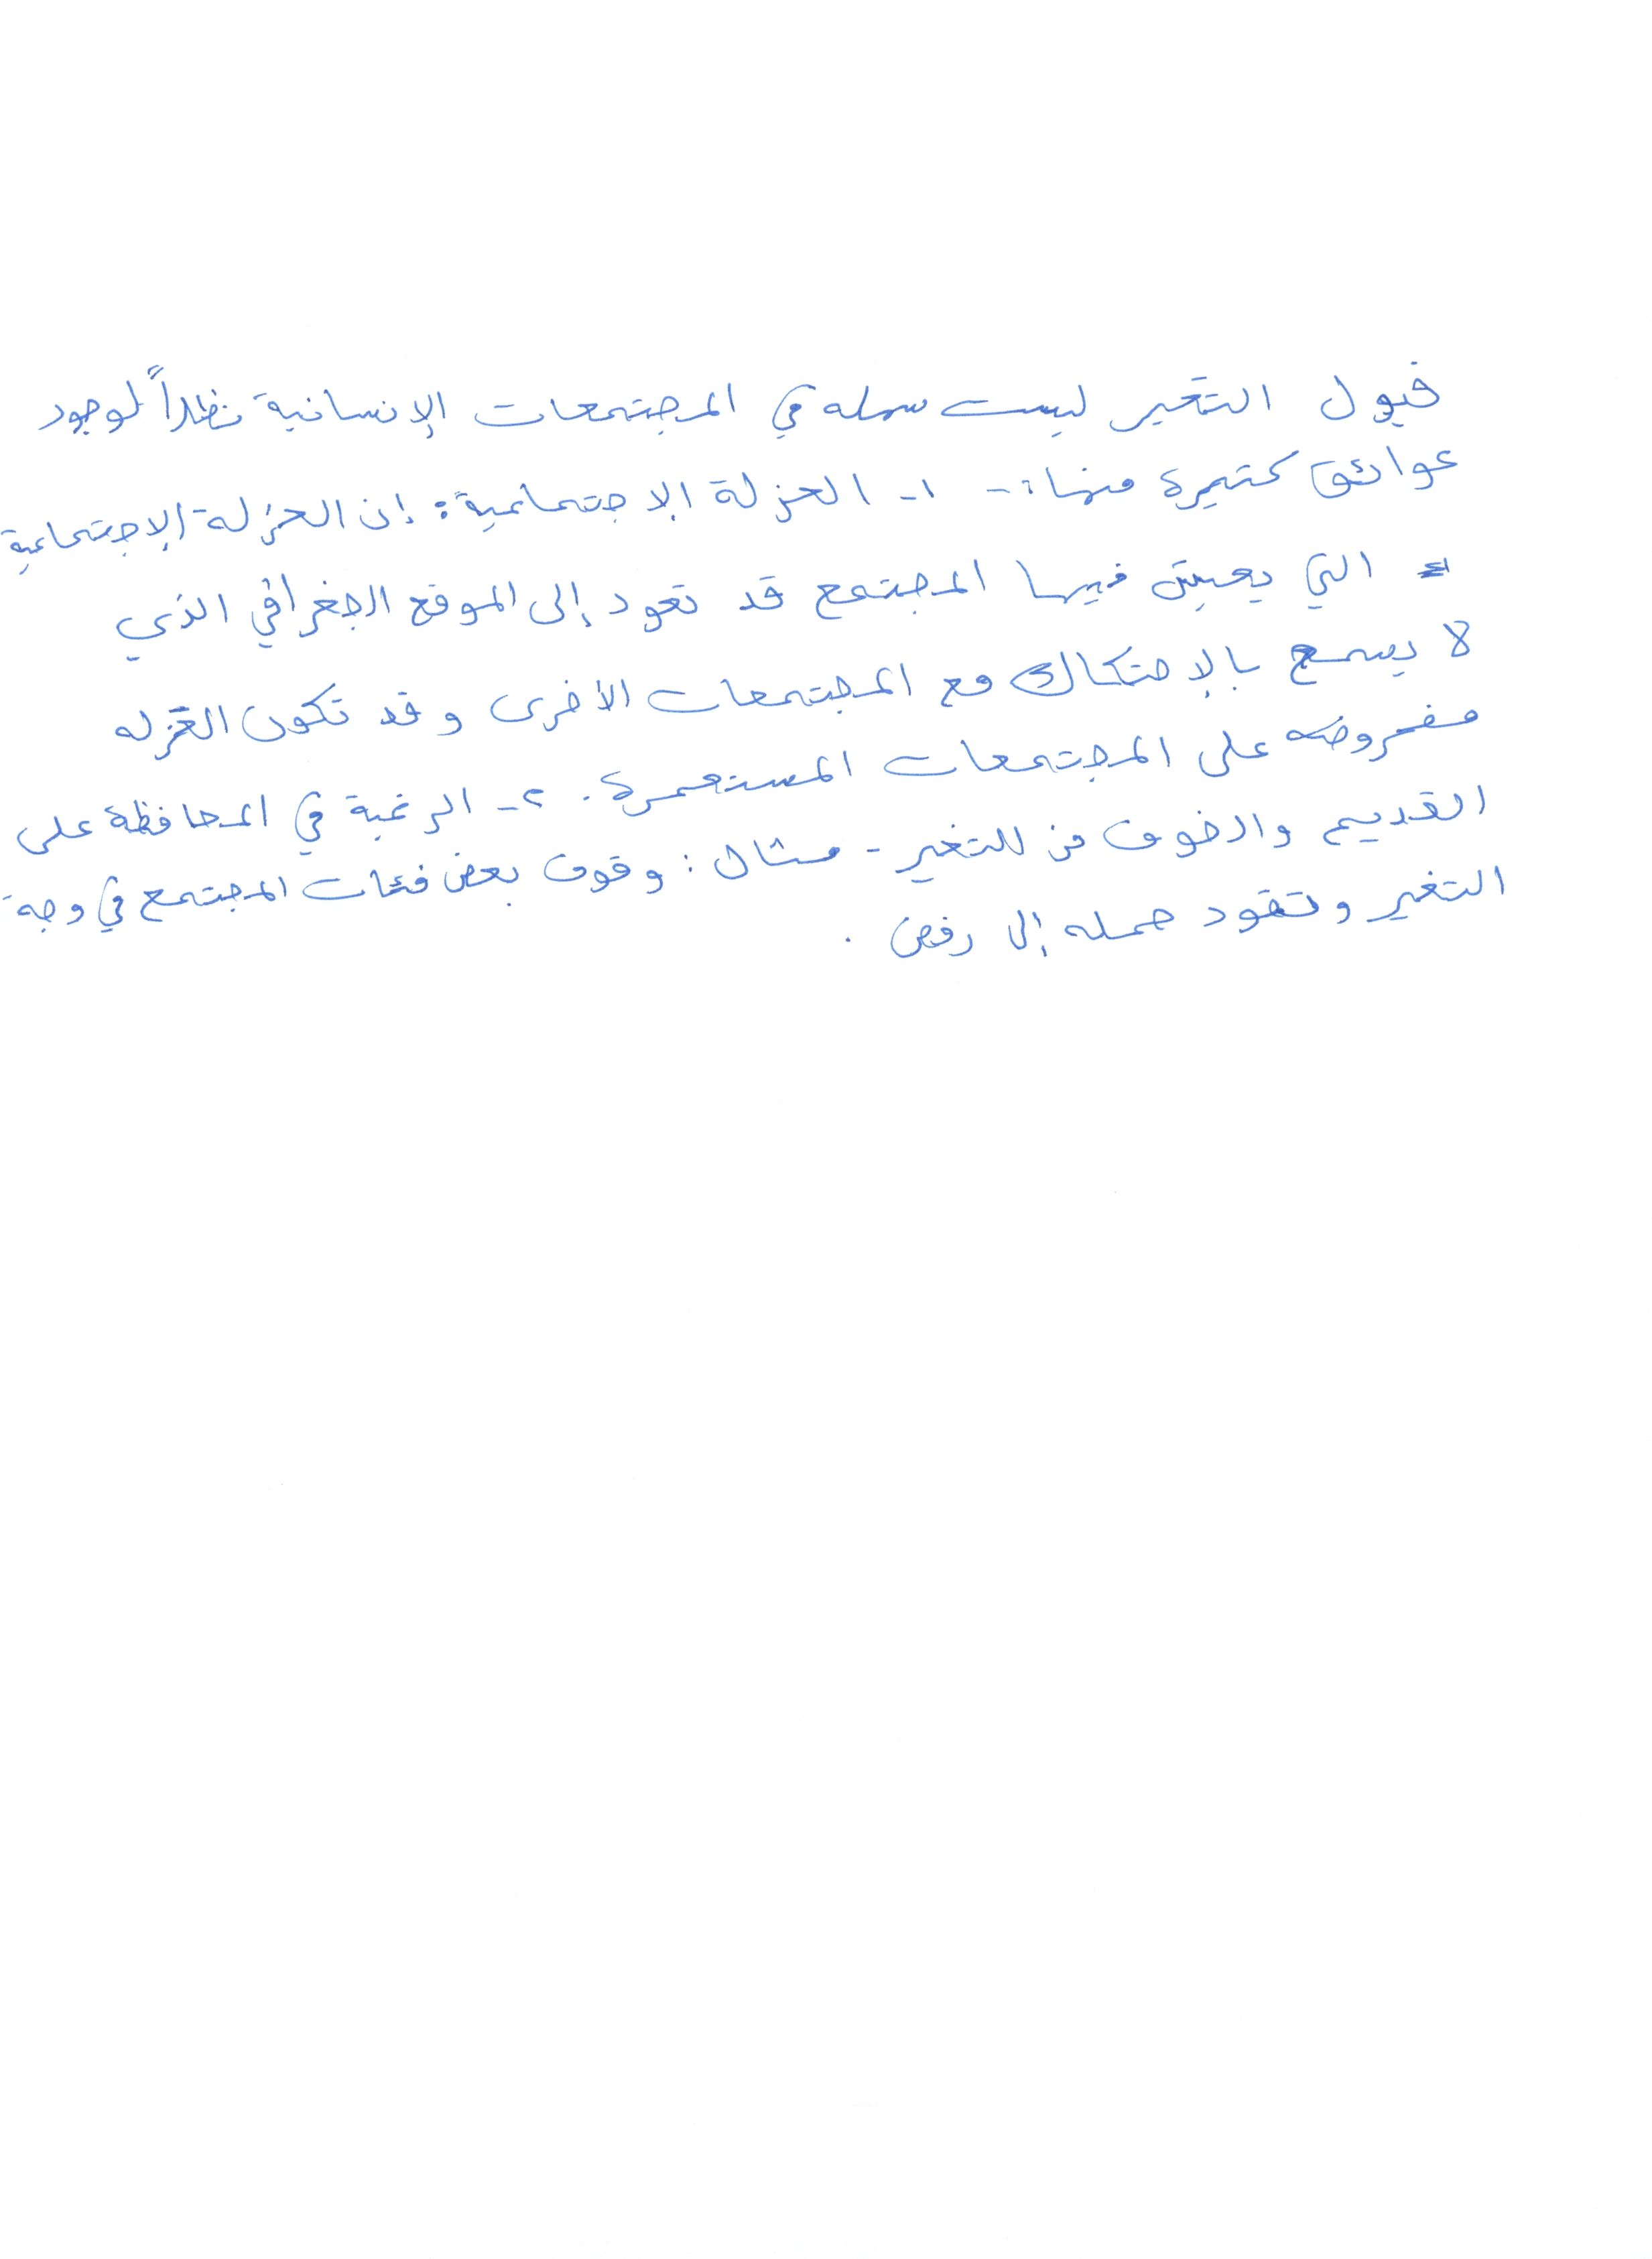 قبول التغير ليست سهله في المجتمعات الإنسانية نظراً لوجود
عوائق كثيرة منها :- ١- العزلة الإجتماعية : إن العزلة الإجتماعية
التي يعيش فيها المجتمع قد تعود إلى الموقع الجغرافي الذي
لا يسمح بالإحتكاك مع المجتمعات الأخرى وقد تكون العزله
مفروضه على المجتمعات المستعمرة . ٢- الرغبة في المحافظة على
القديم والخوف من التغير - مثال : وقوف بعض فئات المجتمع في وجهة
التغير وتقود حمله إلى رفض .